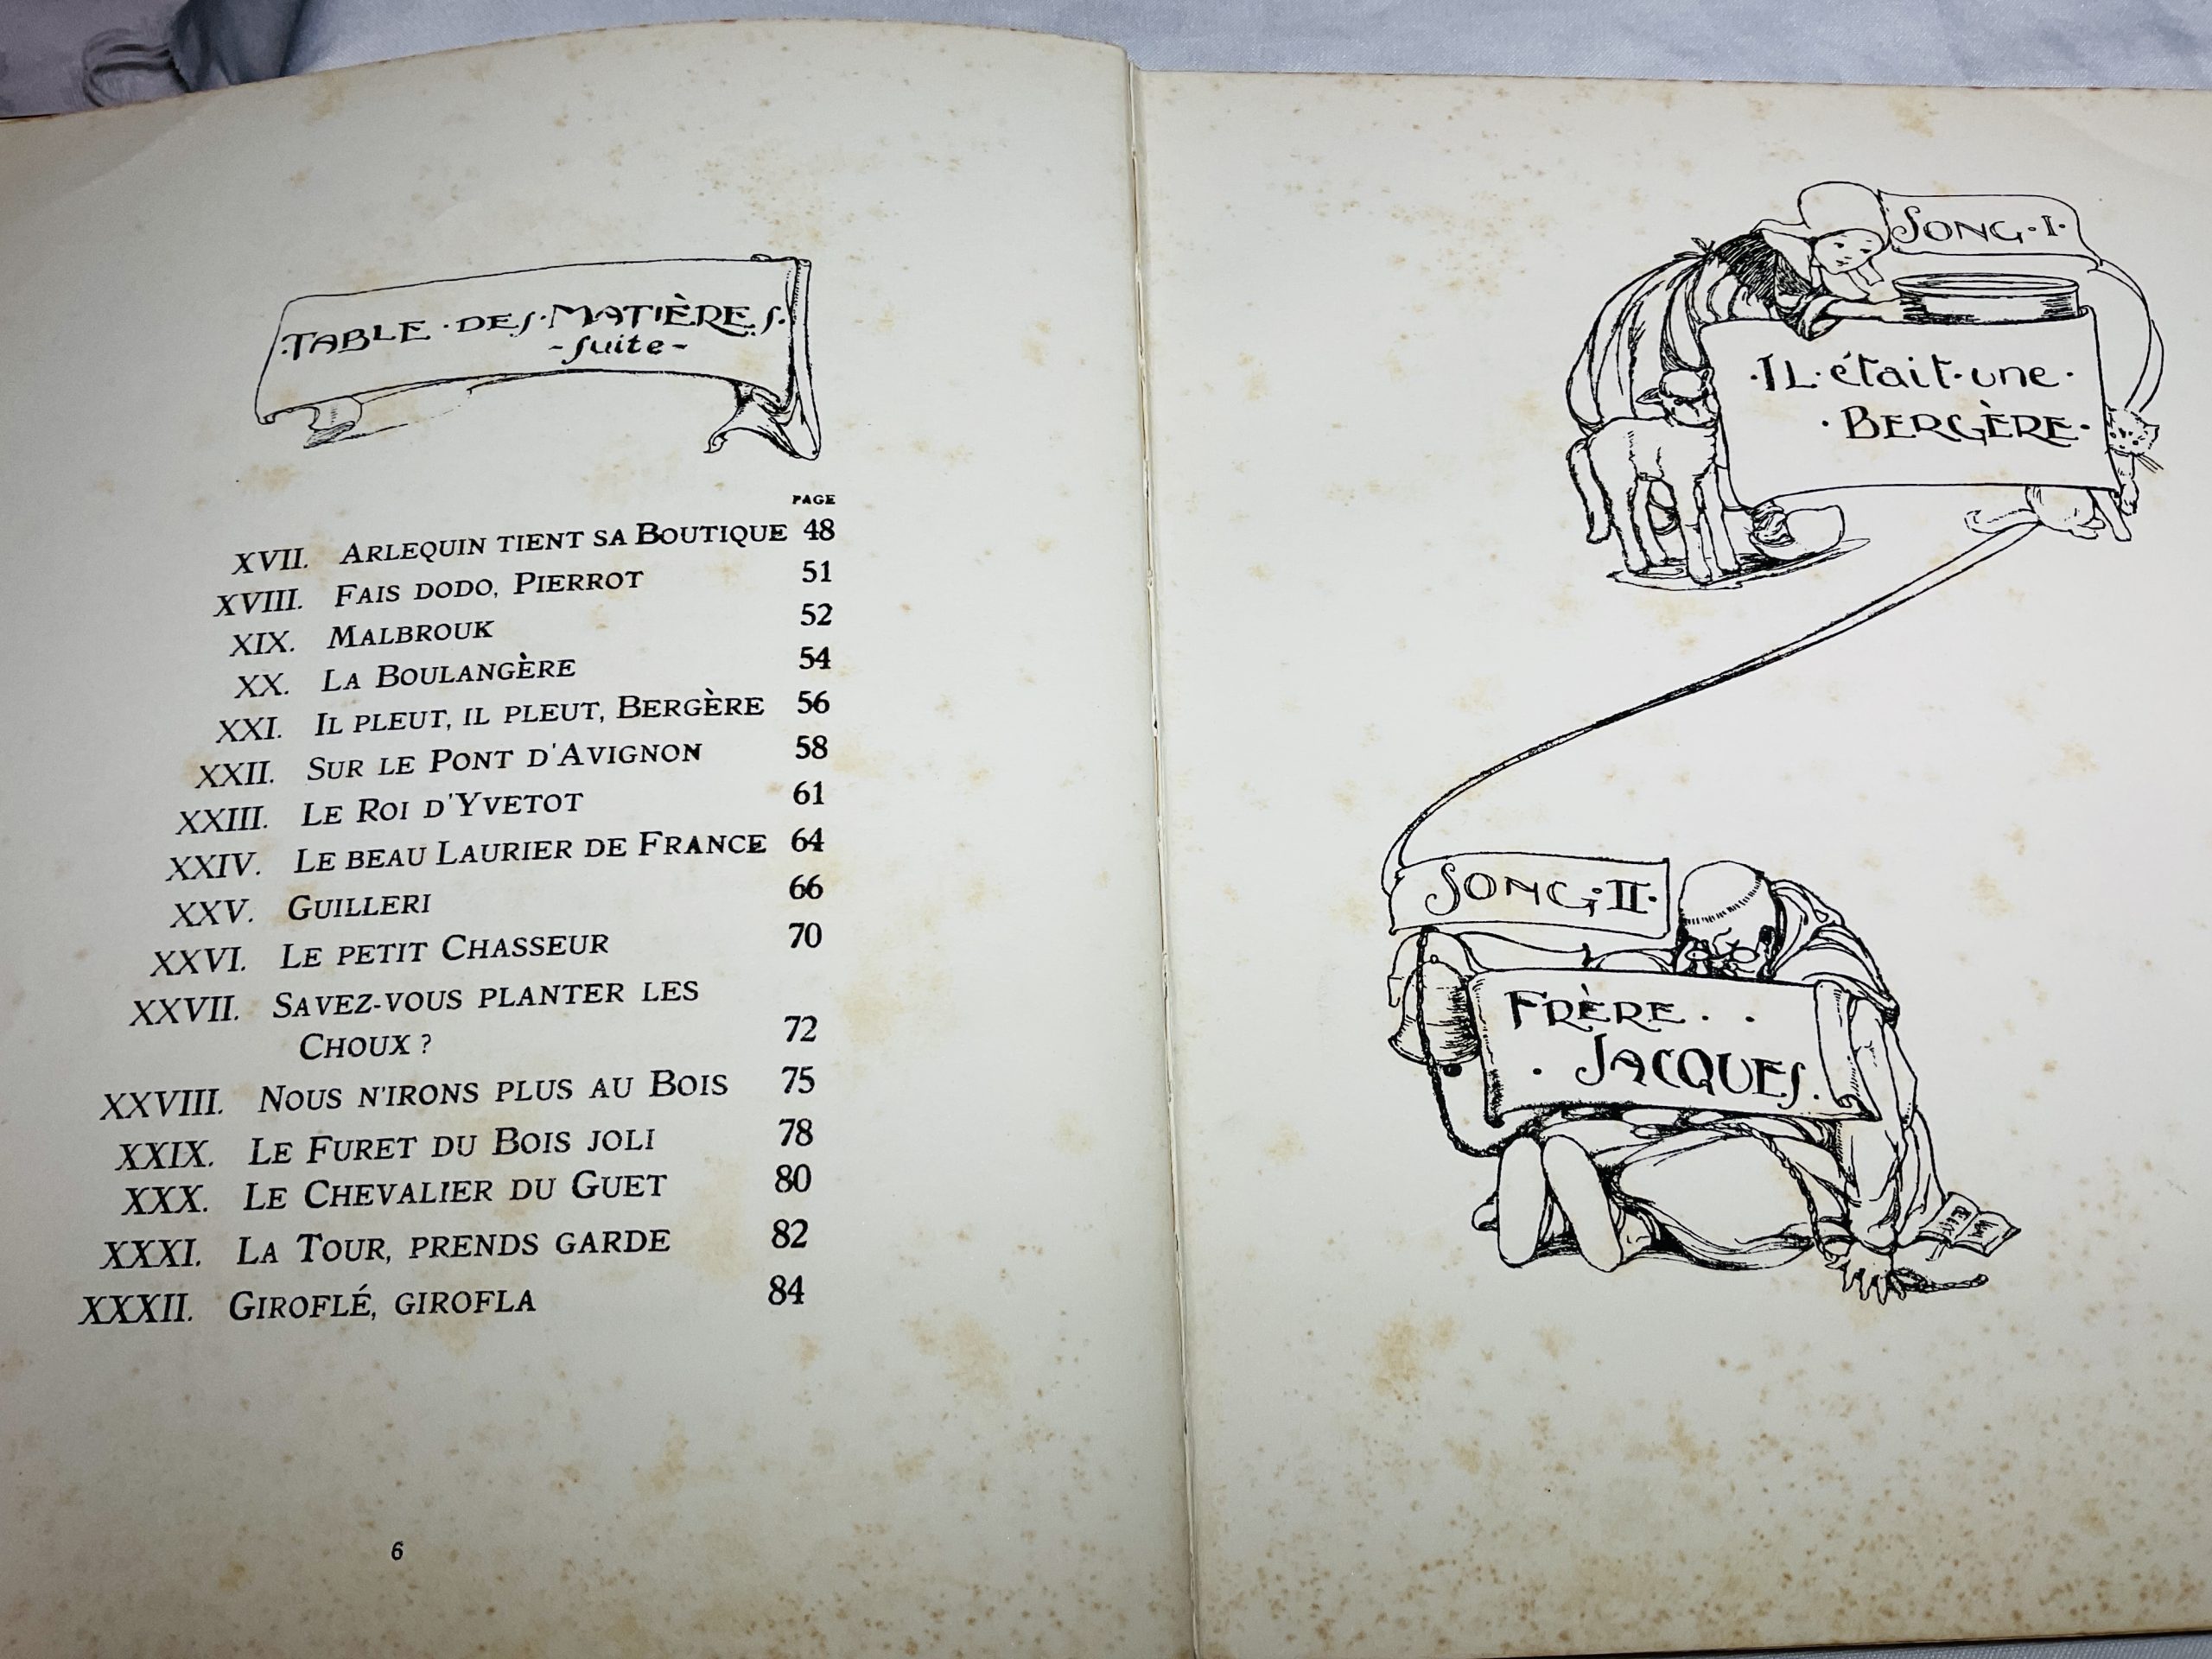 TABLE · DES · MATIÈRES.
- suite -
PAGE
XVII. ARLEQUIN TIENT SA BOUTIQUE 48
XVIII. FAIS DODO, PIERROT 51
XIX. MALBROUK 52
XX. LA BOULANGÈRE 54
XXI. IL PLEUT, IL PLEUT, BERGÈRE 56
XXII. SUR LE PONT D'AVIGNON 58
XXIII. LE ROI D'YVETOT 61
XXIV. LE BEAU LAURIER DE FRANCE 64
XXV. GUILLERI 66
XXVI. LE PETIT CHASSEUR 70
XXVII. SAVEZ-VOUS PLANTER LES
CHOUX ? 72
XXVIII. NOUS N'IRONS PLUS AU BOIS 75
XXIX. LE FURET DU BOIS JOLI 78
XXX. LE CHEVALIER DU GUET 80
XXXI. LA TOUR, PRENDS GARDE 82
XXXII. GIROFLÉ, GIROFLA 84
6
SONG · I ·
· IL · était · une ·
· BERGÈRE ·
SONG · II ·
FRÈRE . .
· JACQUES.